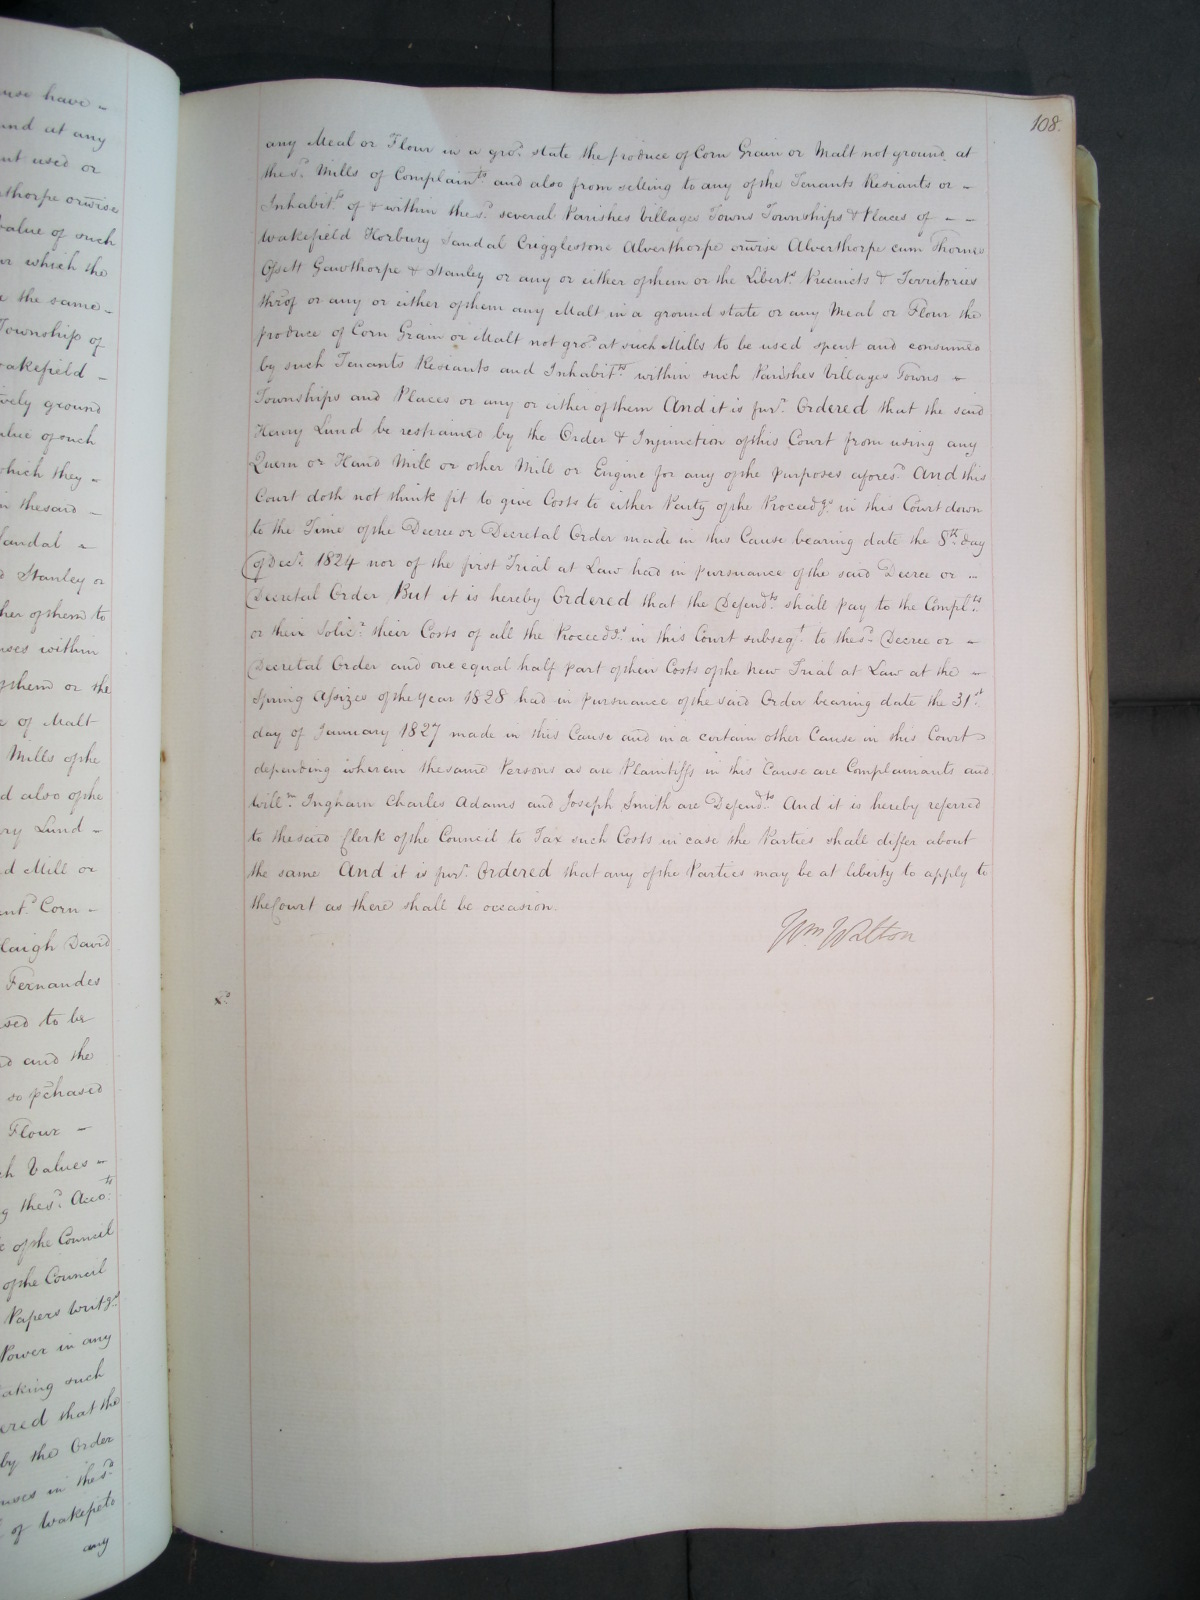 use have -
and at any
ent used or
thorpe orwise
value of such
or which the
e the same -
Township of
Wakefield -
vely ground
alue of such
which they -
in the said -
Sandal -
d Stanley or
her of them to
uses within
of them or the
e of Malt
Mills of the
d also of the
ry Lund -
d Mill or
ent. Corn -
laigh David
Fernandes
sed to be
d and the
so pchased
Flour -
ch Values -
g the sd. Accots.
of the Council
of the Council
Papers Writgs.
Power in any
aking such
ered that the
by the Order
uses in the sd.
of Wakefield
any
108.
any Meal or Flour in a grod. state the produce of Corn Grain or Malt not ground at
the sd. Mills of Complaints. and also from selling to any of the Tenants Resiants or -
Inhabitts. of & within the sd. several Parishes Villages Towns Townships & Places of - -
Wakefield Horbury Sandal Crigglestone Alverthorpe orwise Alverthorpe cum Thornes
Ossett Gawthorpe & Stanley or any or either of them or the Liberts. Precincts & Territories
throf or any or either of them any Malt in a ground state or any Meal or Flour the
produce of Corn Grain or Malt not grod. at such Mills to be used spent and consumed
by such Tenants Resiants and Inhabitts. within such Parishes Villages Towns -
Townships and Places or any or either of them And it is furr. Ordered that the said
Henry Lund be restrained by the Order & Injunction of this Court from using any
Quern or Hand Mill or other Mill or Engine for any of the purposes aforesd. And this
Court doth not think fit to give Costs to either Party of the Proceedgs. in this Court down
to the Time of the Decree or Decretal Order made in this Cause bearing date the 8th. day
of Decr. 1824 nor of the first Trial at Law had in pursuance of the said Decree or ...
Decretal Order But it is hereby Ordered that the Defendts. shall pay to the Complts.
or their Solicr. their Costs of all the Proceedgs. in this Court subseqt. to the sd. Decree or -
Decretal Order and one equal half part of their Costs of the New Trial at Law at the -
Spring Assizes of the Year 1828 had in pursuance of the said Order bearing date the 31st.
day of January 1827 made in this Cause and in a certain other Cause in this Court
depending wherein the same Persons as are Plaintiffs in this Cause are Complainants and
Willm. Ingham Charles Adams and Joseph Smith are Defendts. And it is hereby referred
to the said Clerk of the Council to Tax such Costs in case the Parties shall differ about
the same And it is furr. Ordered that any of the Parties may be at liberty to apply to
the Court as there shall be occasion.
Wm. Walton